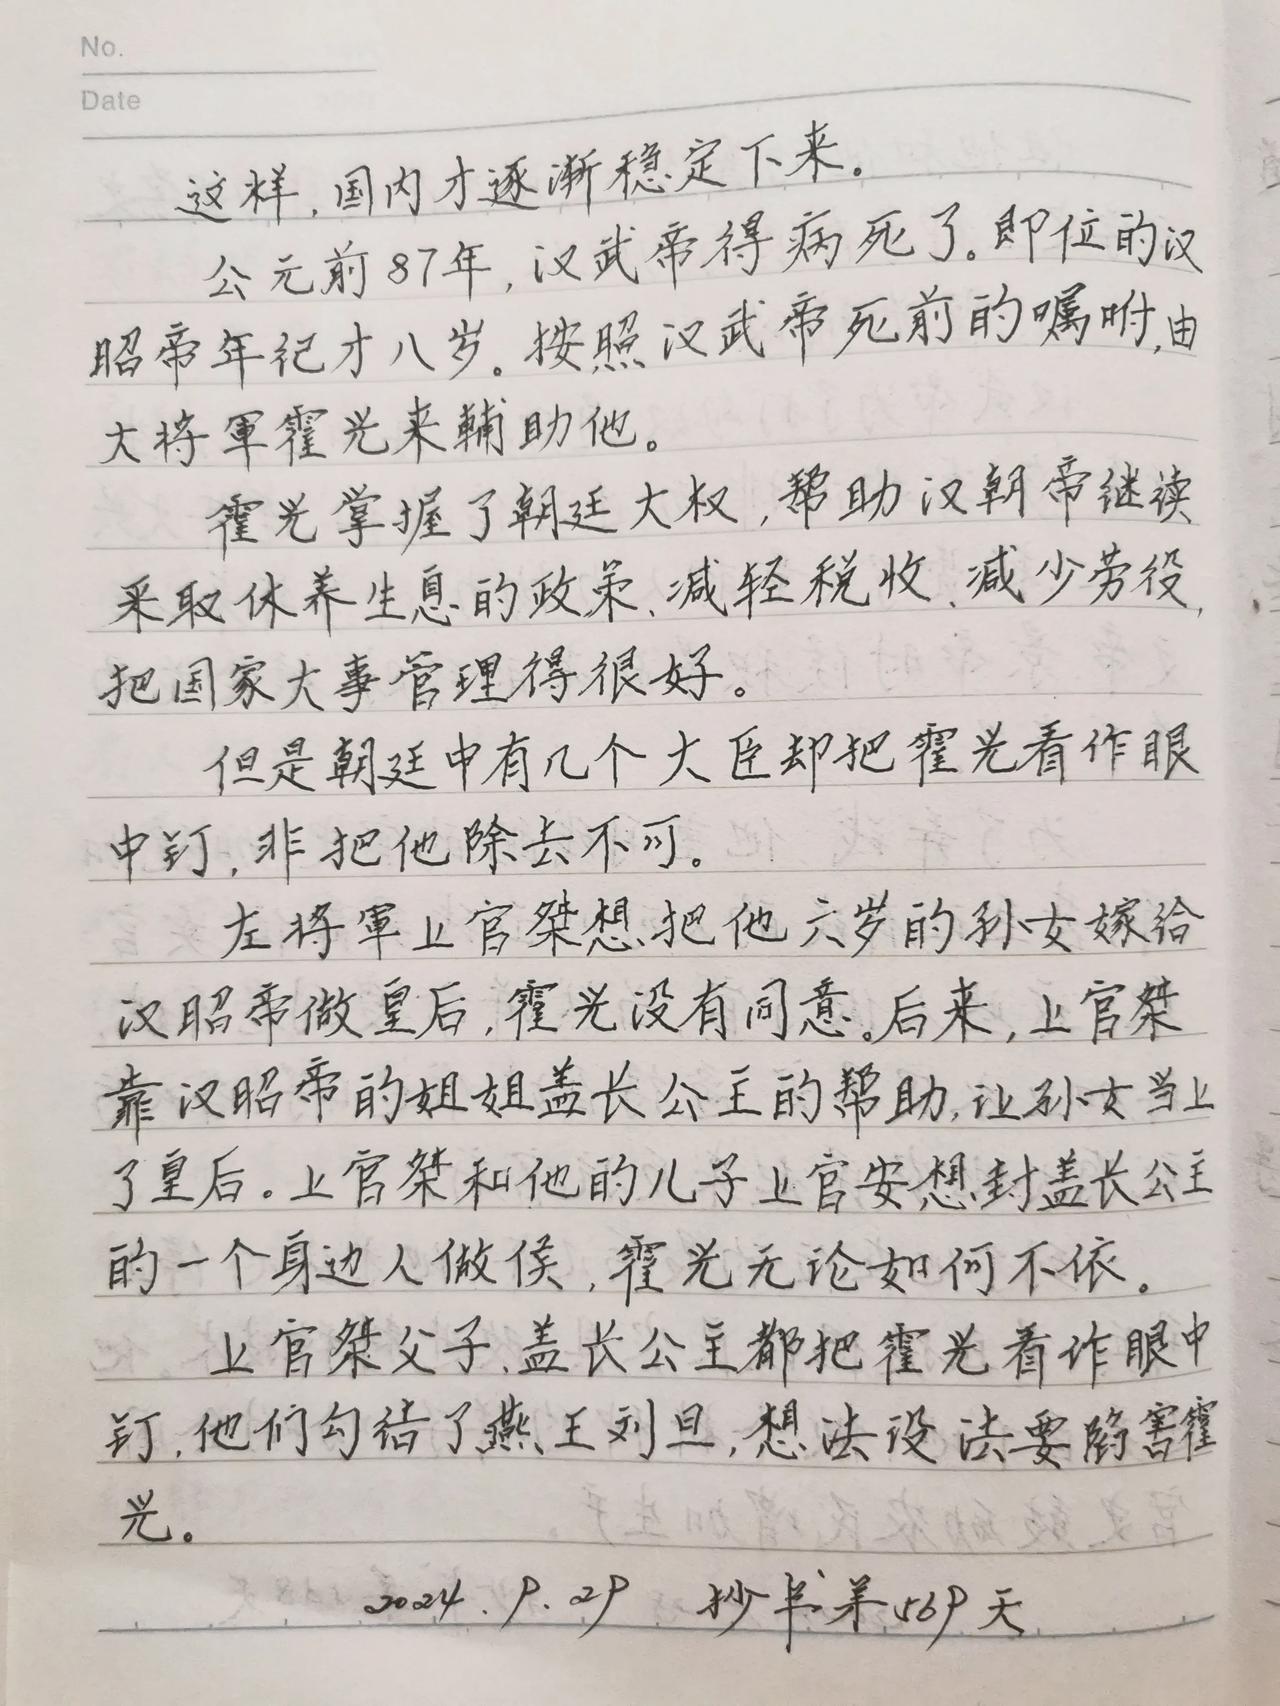 No.
Date
这样,国内才逐渐稳定下来。
公元前87年,汉武帝得病死了。即位的汉
昭帝年纪才八岁。按照汉武帝死前的嘱咐,由
大将軍霍光来輔助他。
霍光掌握了朝廷大权,帮助汉朝帝继续
采取休养生息的政策、减轻税收、减少劳役,
把国家大事管理得很好。
但是朝廷中有几个大臣却把霍光看作眼
中钉,非把他除去不可。
左将軍上官桀想把他六岁的孙女嫁给
汉昭帝做皇后,霍光没有同意。后来,上官桀
靠汉昭帝的姐姐盖长公主的帮助,让孙女当上
了皇后。上官桀和他的儿子上官安想封盖长公主
的一个身边人做侯,霍光无论如何不依。
上官桀父子、盖长公主都把霍光看作眼中
钉,他们勾结了燕王刘旦,想法设法要陷害霍
光。
2024.9.29 抄书第569天